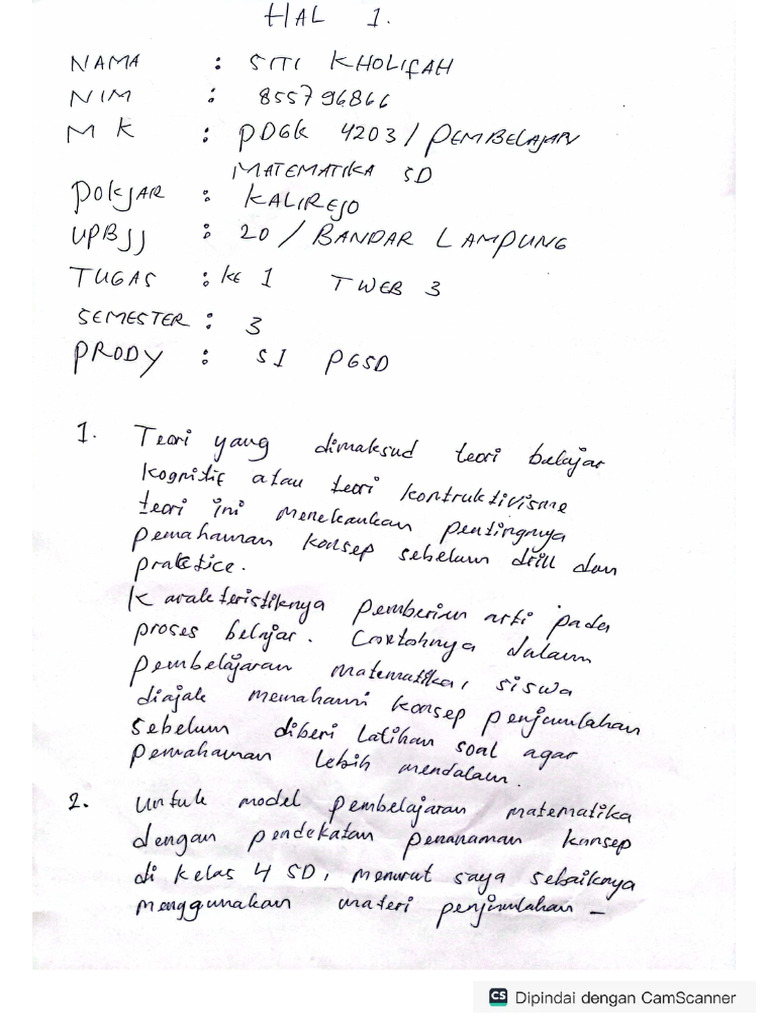 HAL 1.
NAMA : SITI KHOLIFAH
NIM : 855796866
MK : PDGK 4203 / PEMBELAJARAN
MATEMATIKA SD
POKJAR : KALIREJO
UPBJJ : 20 / BANDAR LAMPUNG
TUGAS : KE 1 TWEB 3
SEMESTER : 3
PRODY : S1 PGSD
1. Teori yang dimaksud teori belajar
kognitif atau teori kontruktivisme
teori ini menekankan pentingnya
pemahaman konsep sebelum drill dan
praktice.
Karakteristiknya pemberian arti pada
proses belajar. Contohnya dalam
pembelajaran matematika, siswa
diajak memahami konsep penjumlahan
sebelum diberi latihan soal agar
pemahaman lebih mendalam.
2. Untuk model pembelajaran matematika
dengan pendekatan penanaman konsep
di kelas 4 SD, menurut saya sebaiknya
menggunakan materi penjumlahan -
CS Dipindai dengan CamScanner